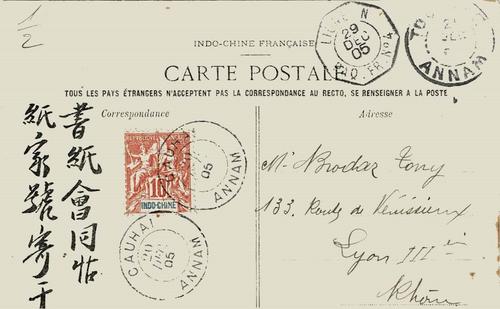 1/2
INDO-CHINE FRANÇAISE
CARTE POSTALE
TOUS LES PAYS ÉTRANGERS N'ACCEPTENT PAS LA CORRESPONDANCE AU RECTO, SE RENSEIGNER A LA POSTE
Correspondance
Adresse
LIGNE N
29
DEC
05
PAQ. FR. Nº4
ANNAM
書紙會同帖
紙家號寄于
10
INDO-CHINE
05
ANNAM
CAUHAI
20
05
ANNAM
Mr Brodaz Tony
133. Route de Vénissieux
Lyon III
Rhône